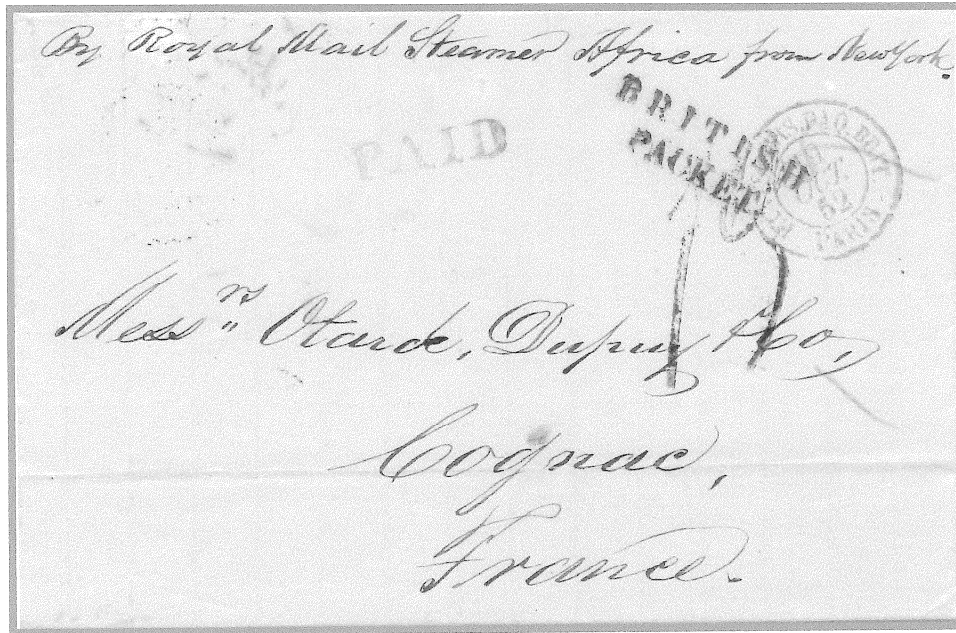 By Royal Mail Steamer Africa from New York.
PAID
BRITISH
PACKET
PARIS
52
Mess^rs Otard, Dupuy & Co,
Cognac,
France.